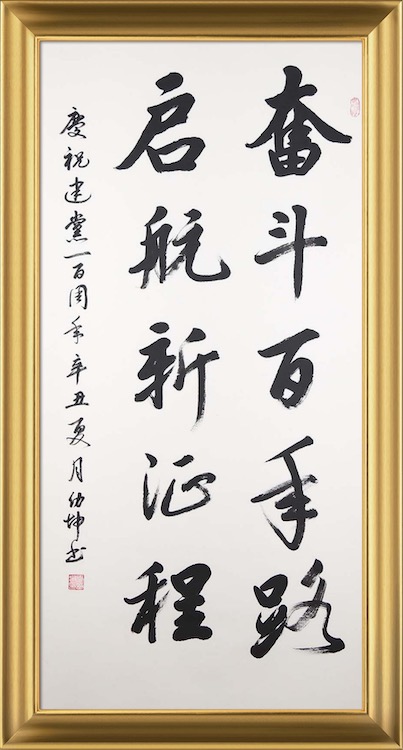 奋斗百年路
启航新征程
慶祝建黨一百周年辛丑夏月幼坤书